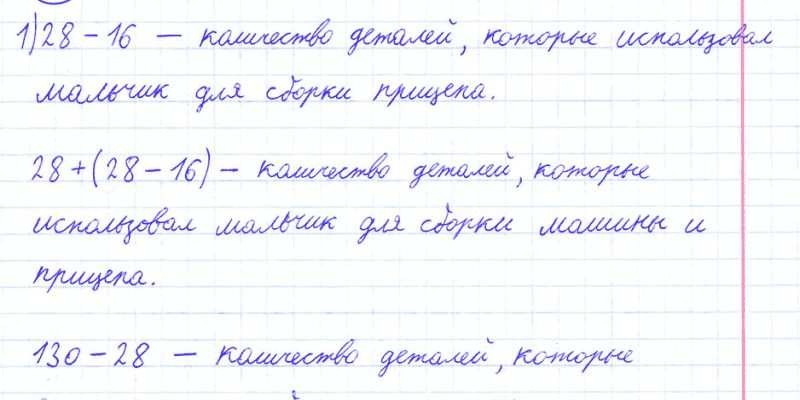 1) 28 - 16 — количество деталей, которые использовал
мальчик для сборки прицепа.
28 + (28 - 16) — количество деталей, которые
использовал мальчик для сборки машины и
прицепа.
130 - 28 — количество деталей, которые